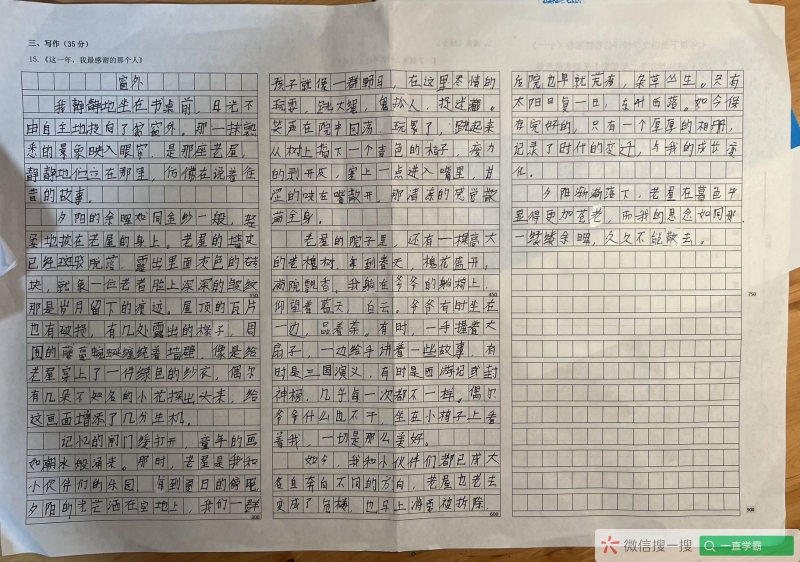 三、写作（35分）
15.《这一年，我最感谢的那个人》
窗外
我静静地坐在书桌前，目光不
由自主地投向了窗外。那一抹熟
悉的景象映入眼帘，是那座老屋，
静静地伫立在那里，仿佛在诉着往
昔的故事。
夕阳的余晖如同金纱一般，轻
轻地披在老屋的身上。老屋的墙皮
已经斑驳脱落，露出里面灰色的砖
块，就象一位老者脸上深深的皱纹
那是岁月留下的痕迹。屋顶的瓦片
也有破损，有几处露出的椽子，周
围的蜿蜒缠绕着墙壁，像是给
老屋穿上了一件绿色的纱衣，偶尔
有几朵不知名的小花探出头来，给
这画面增添了几分生机。
记忆的闸门缓打开，童年的画
如潮水般涌来。那时，老屋是我和
小伙伴们的乐园，每到夏日的傍晚
夕阳的光芒洒在空地上，我们一群
300
孩子就像一群野马，在这里尽情的
玩耍，跳大绳，鬼抓人，捉迷藏。
笑声在院中回荡，玩累了，跳起来
从树上摘下一个青色的桔子，费力
的剥开皮，塞上一点进入嘴里，甘
涩的味在嘴散开，那清凉的感觉散
满全身。
老屋的院子里，还有一棵高大
的老槐树，每到春天，槐花盛开，
满院飘香。我躺在爷爷的躺椅上，
仰望着蓝天，白云。爷爷有时坐在
一边，品着茶。有时，一手握着大
扇子，一边给予讲着一些故事，有
时是三国演义，有时是西游记或封
神榜，几乎每一次都不一样。偶尔
爷爷什么也不干，坐在小椅子上看
着我，一切是那么美好。
如今，我和小伙伴们都已成大
各自奔向不同的方向，老屋也老去
变成了危楼，也早上消要被拆除
600
后院也早就荒芜，杂草丛生。只有
太阳日复一日，东升西落。如今保
存完好的，只有一个厚厚的相册，
记录了时代的变迁，与我的成长变
化。
夕阳渐渐落下，老屋在暮色中
显得更加苍老，而我的思念如同那
一缕缕余晖，久久不能散去。
750
900
微信搜一搜
一直学霸